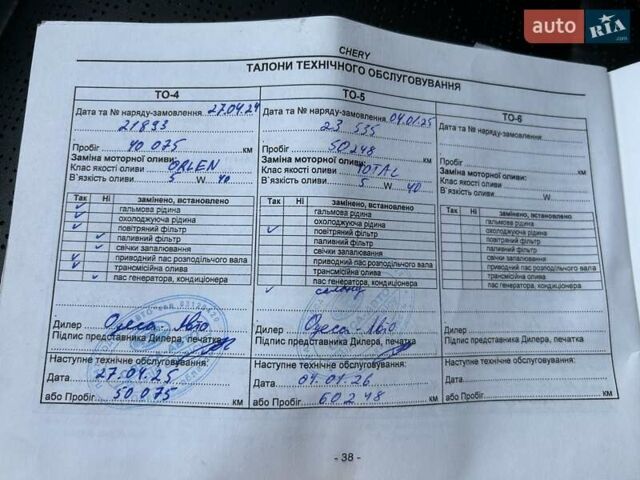 auto RIA .com
CHERY
ТАЛОНИ ТЕХНІЧНОГО ОБСЛУГОВУВАННЯ
ТО-4
Дата та № наряду-замовлення 27.04.24
21833
Пробіг 40 075 км
Заміна моторної оливи:
Клас якості оливи ORLEN
В`язкість оливи 5 W 40
Так Ні замінено, встановлено
гальмова рідина
охолоджуюча рідина
повітряний фільтр
паливний фільтр
свічки запалювання
приводний пас розподільчого вала
трансмісійна олива
пас генератора, кондиціонера
Дилер Одеса-Авто
Підпис представника Дилера, печатка
Наступне технічне обслуговування:
Дата 27.04.25
або Пробіг 50 075 км
ТО-5
Дата та № наряду-замовлення 04.01.25
23 535
Пробіг 50248 км
Заміна моторної оливи:
Клас якості оливи TOTAL
В`язкість оливи 5 W 40
Так Ні замінено, встановлено
гальмова рідина
охолоджуюча рідина
повітряний фільтр
паливний фільтр
свічки запалювання
приводний пас розподільчого вала
трансмісійна олива
пас генератора, кондиціонера
салону
Дилер Одеса-Авто
Підпис представника Дилера, печатка
Наступне технічне обслуговування:
Дата 04.01.26
або Пробіг 60248 км
ТО-6
Дата та № наряду-замовлення
Пробіг км
Заміна моторної оливи:
Клас якості оливи
В`язкість оливи W
Так Ні замінено, встановлено
гальмова рідина
охолоджуюча рідина
повітряний фільтр
паливний фільтр
свічки запалювання
приводний пас розподільчого вала
трансмісійна олива
пас генератора, кондиціонера
Дилер
Підпис представника Дилера, печатка
Наступне технічне обслуговування:
Дата
або Пробіг км
- 38 -